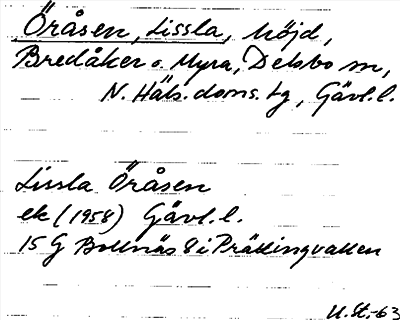 Öråsen, Lissla, höjd,
Bredåker o. Myra, Delsbo sn,
N. Häls. doms. tg, Gävl. l.
Lissla Öråsen
ek (1958) Gävl. l.
15 G Bollnäs 8 i Prästingvallen
U.St.-63